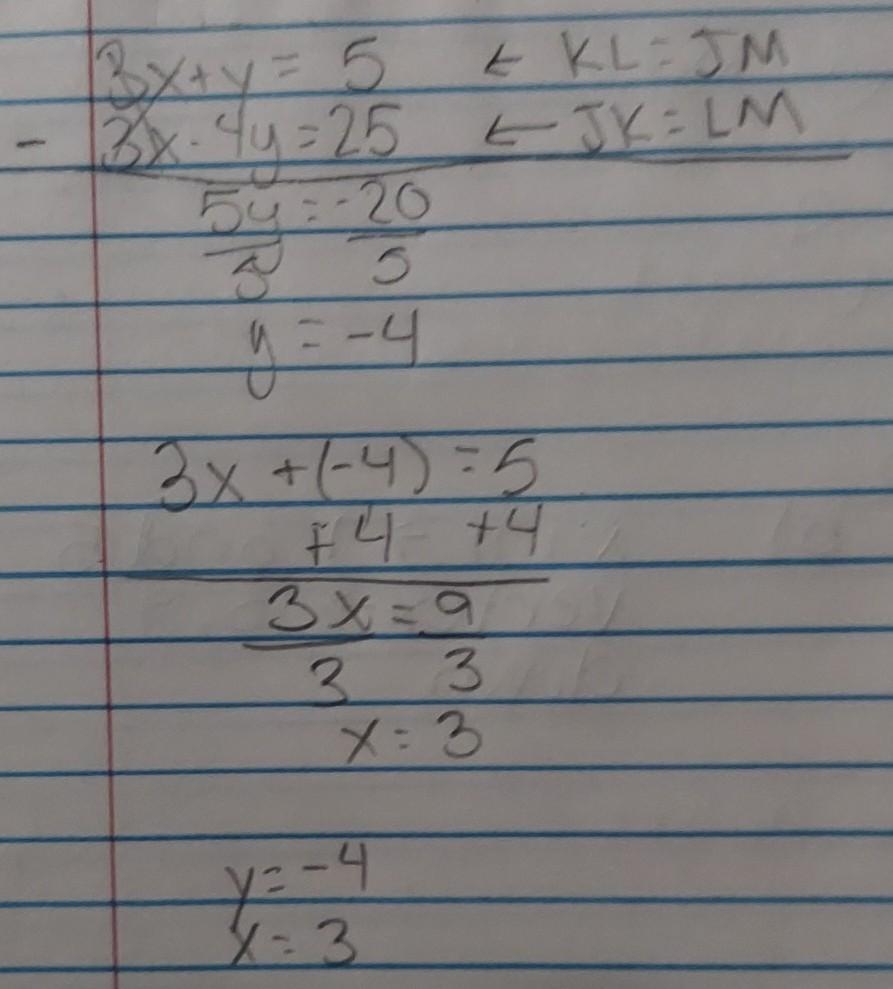 3x+y= 5 ← KL=JM
- 3x-4y=25 ← JK=LM
5y=-20
5 5
y = -4
3x +(-4) =5
+4 +4
3x=9
3 3
x=3
y=-4
x=3